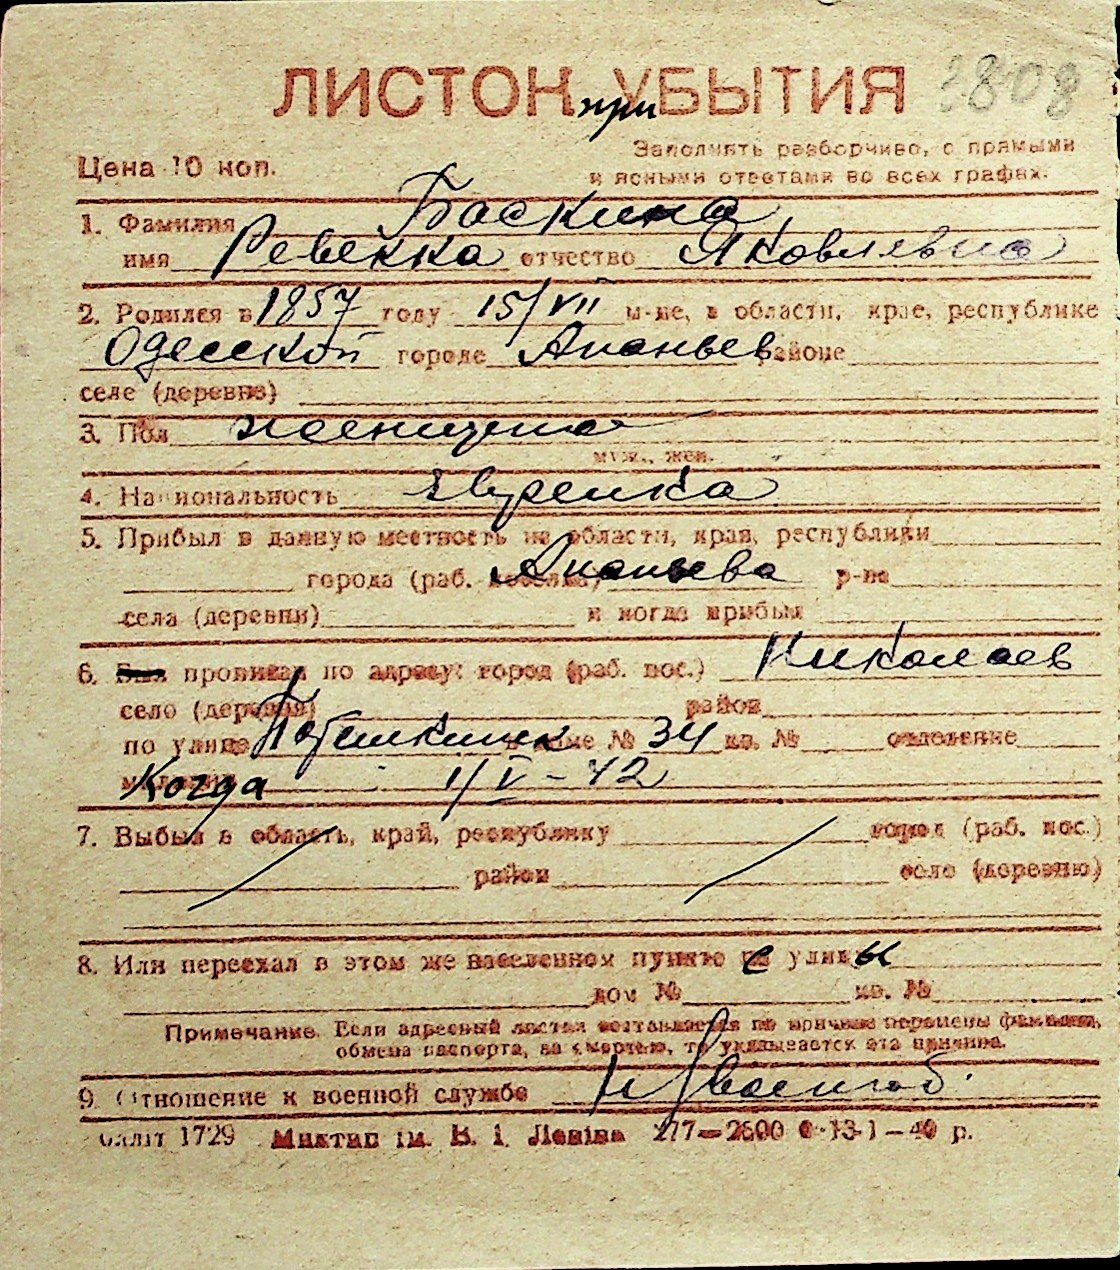 ЛИСТОК УБЫТИЯ
при
Цена 10 коп.
Заполнять разборчиво, с прямыми
и ясными ответами во всех графах.
1. Фамилия Баскина
имя Ревекка отчество Яковлевна
2. Родился в 1857 году 15/VII м-це, в области, крае, республике
Одесской городе Ананьев районе
селе (деревне)
3. Пол женщина
муж., жен.
4. Национальность Еврейка
5. Прибыл в данную местность из области, края, республики
города (раб. поселка) Ананьева р-на
села (деревни) и когда прибыл
6. Был проживал по адресу: город (раб. пос.) Николаев
село (деревня) район
по улице доме № 34 кв. № отделение
милиции Когда 1/V-42
7. Выбыл в область, край, республику город (раб. пос.)
район село (деревню)
8. Или переехал в этом же населенном пункте с улицы
дом № кв. №
Примечание. Если адресный листок составляется по причине перемены фамилии,
обмена паспорта, за смертью, то указывается эта причина.
9. Отношение к военной службе
1729 Миктип ім. В. І. Леніна 277—2600 13-1—40 р.